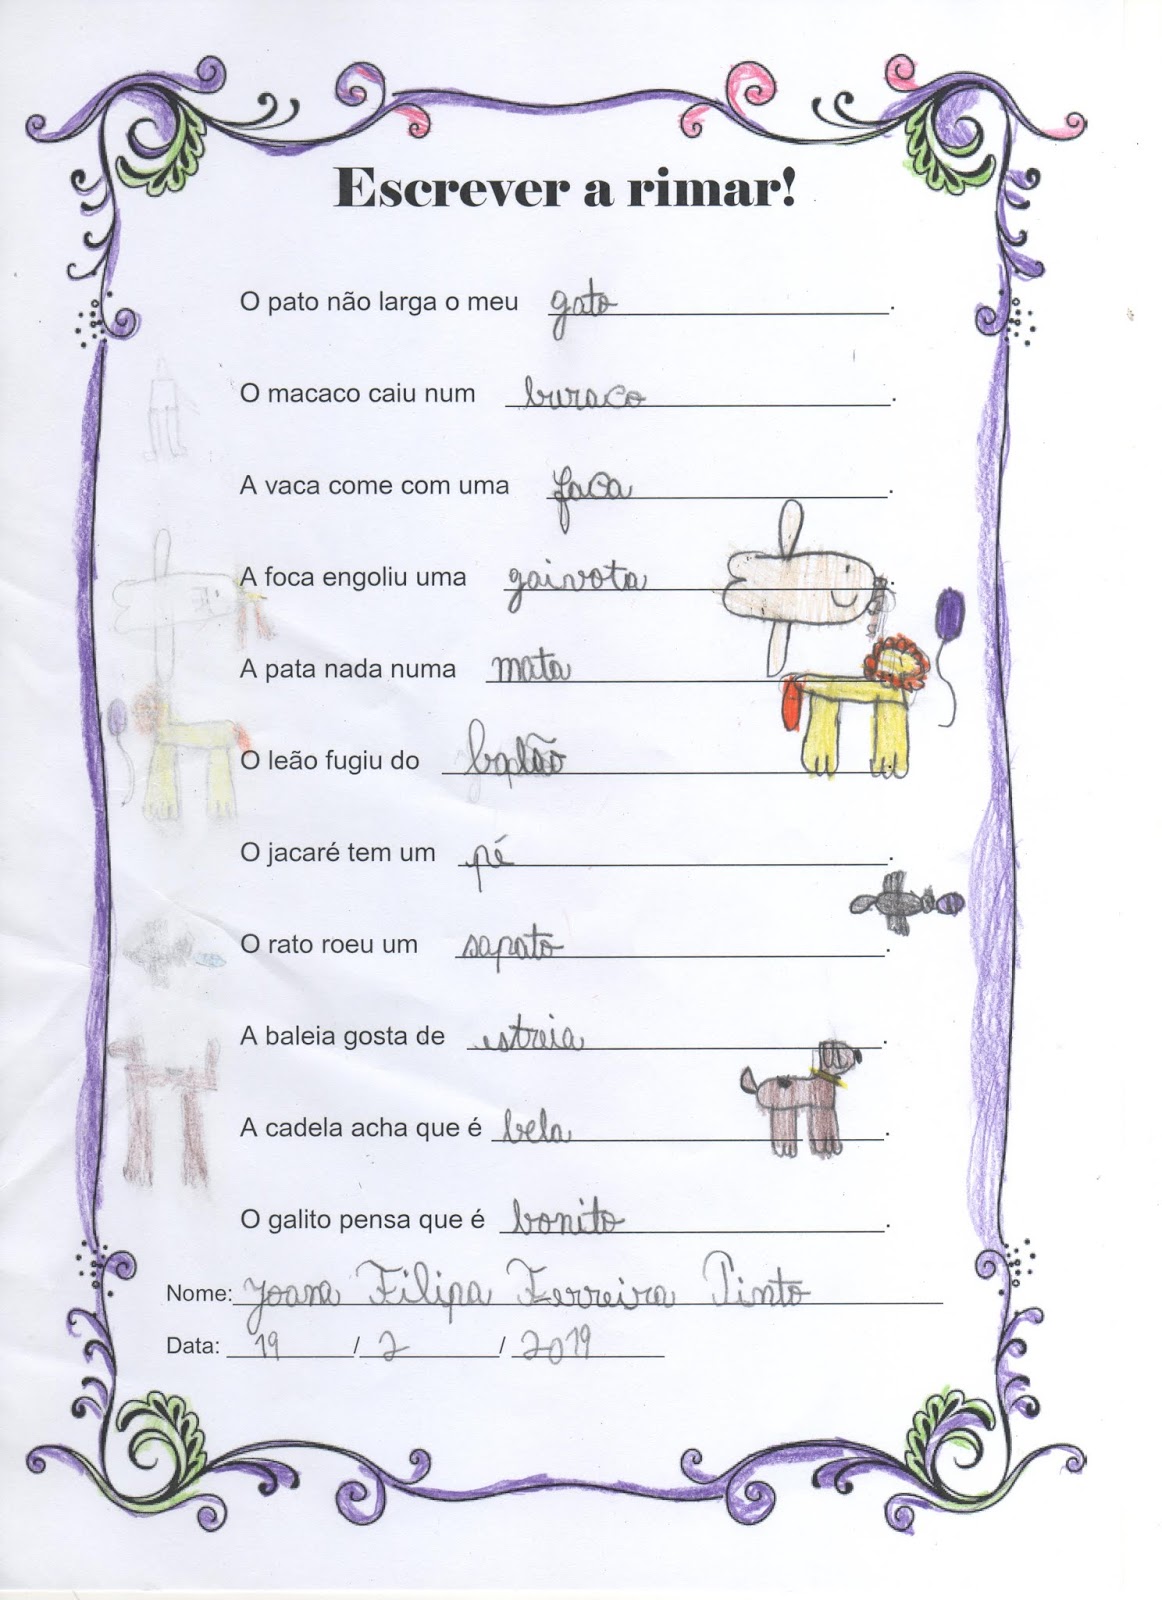 Escrever a rimar!
O pato não larga o meu gato.
O macaco caiu num buraco.
A vaca come com uma faca.
A foca engoliu uma gaivota.
A pata nada numa mata.
O leão fugiu do balão.
O jacaré tem um pé.
O rato roeu um sapato.
A baleia gosta de estreia.
A cadela acha que é bela.
O galito pensa que é bonito.
Nome: Joana Filipa Ferreira Pinto
Data: 19 / 2 / 2019